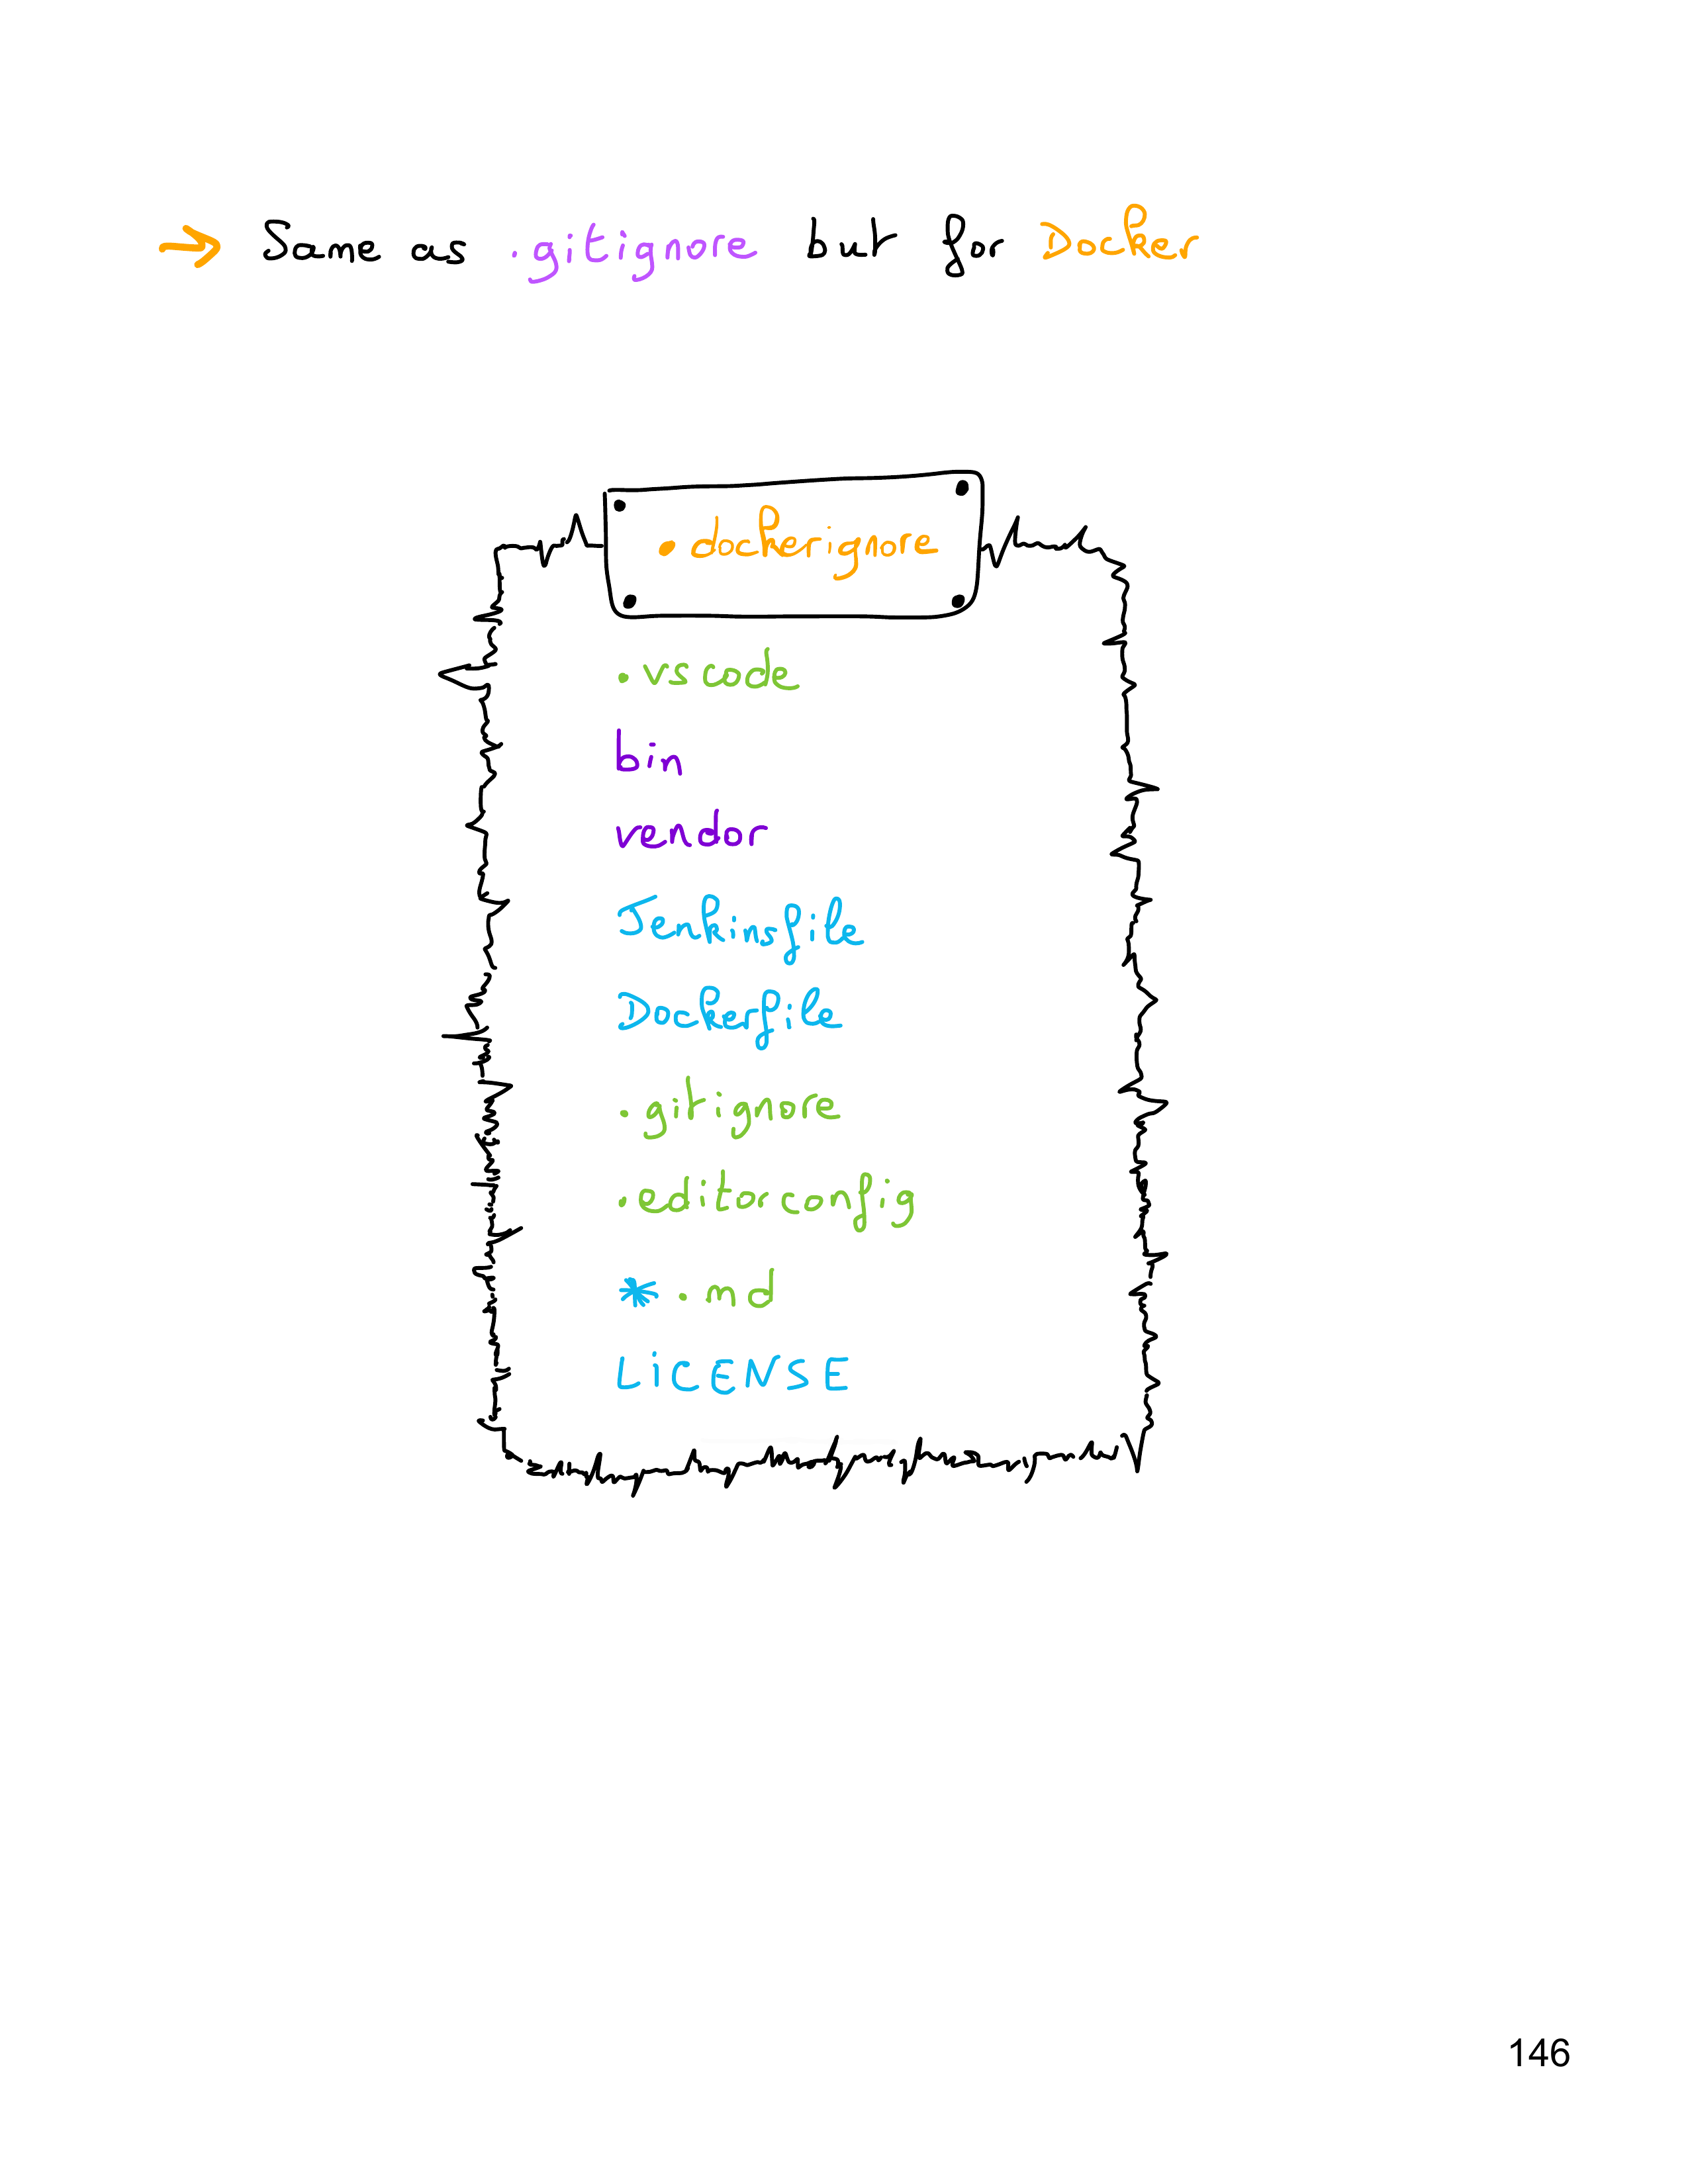 → Same as .gitignore but for Docker
.dockerignore
.vscode
bin
vendor
Jenkinsfile
Dockerfile
.gitignore
.editorconfig
*.md
LiCENSE
146